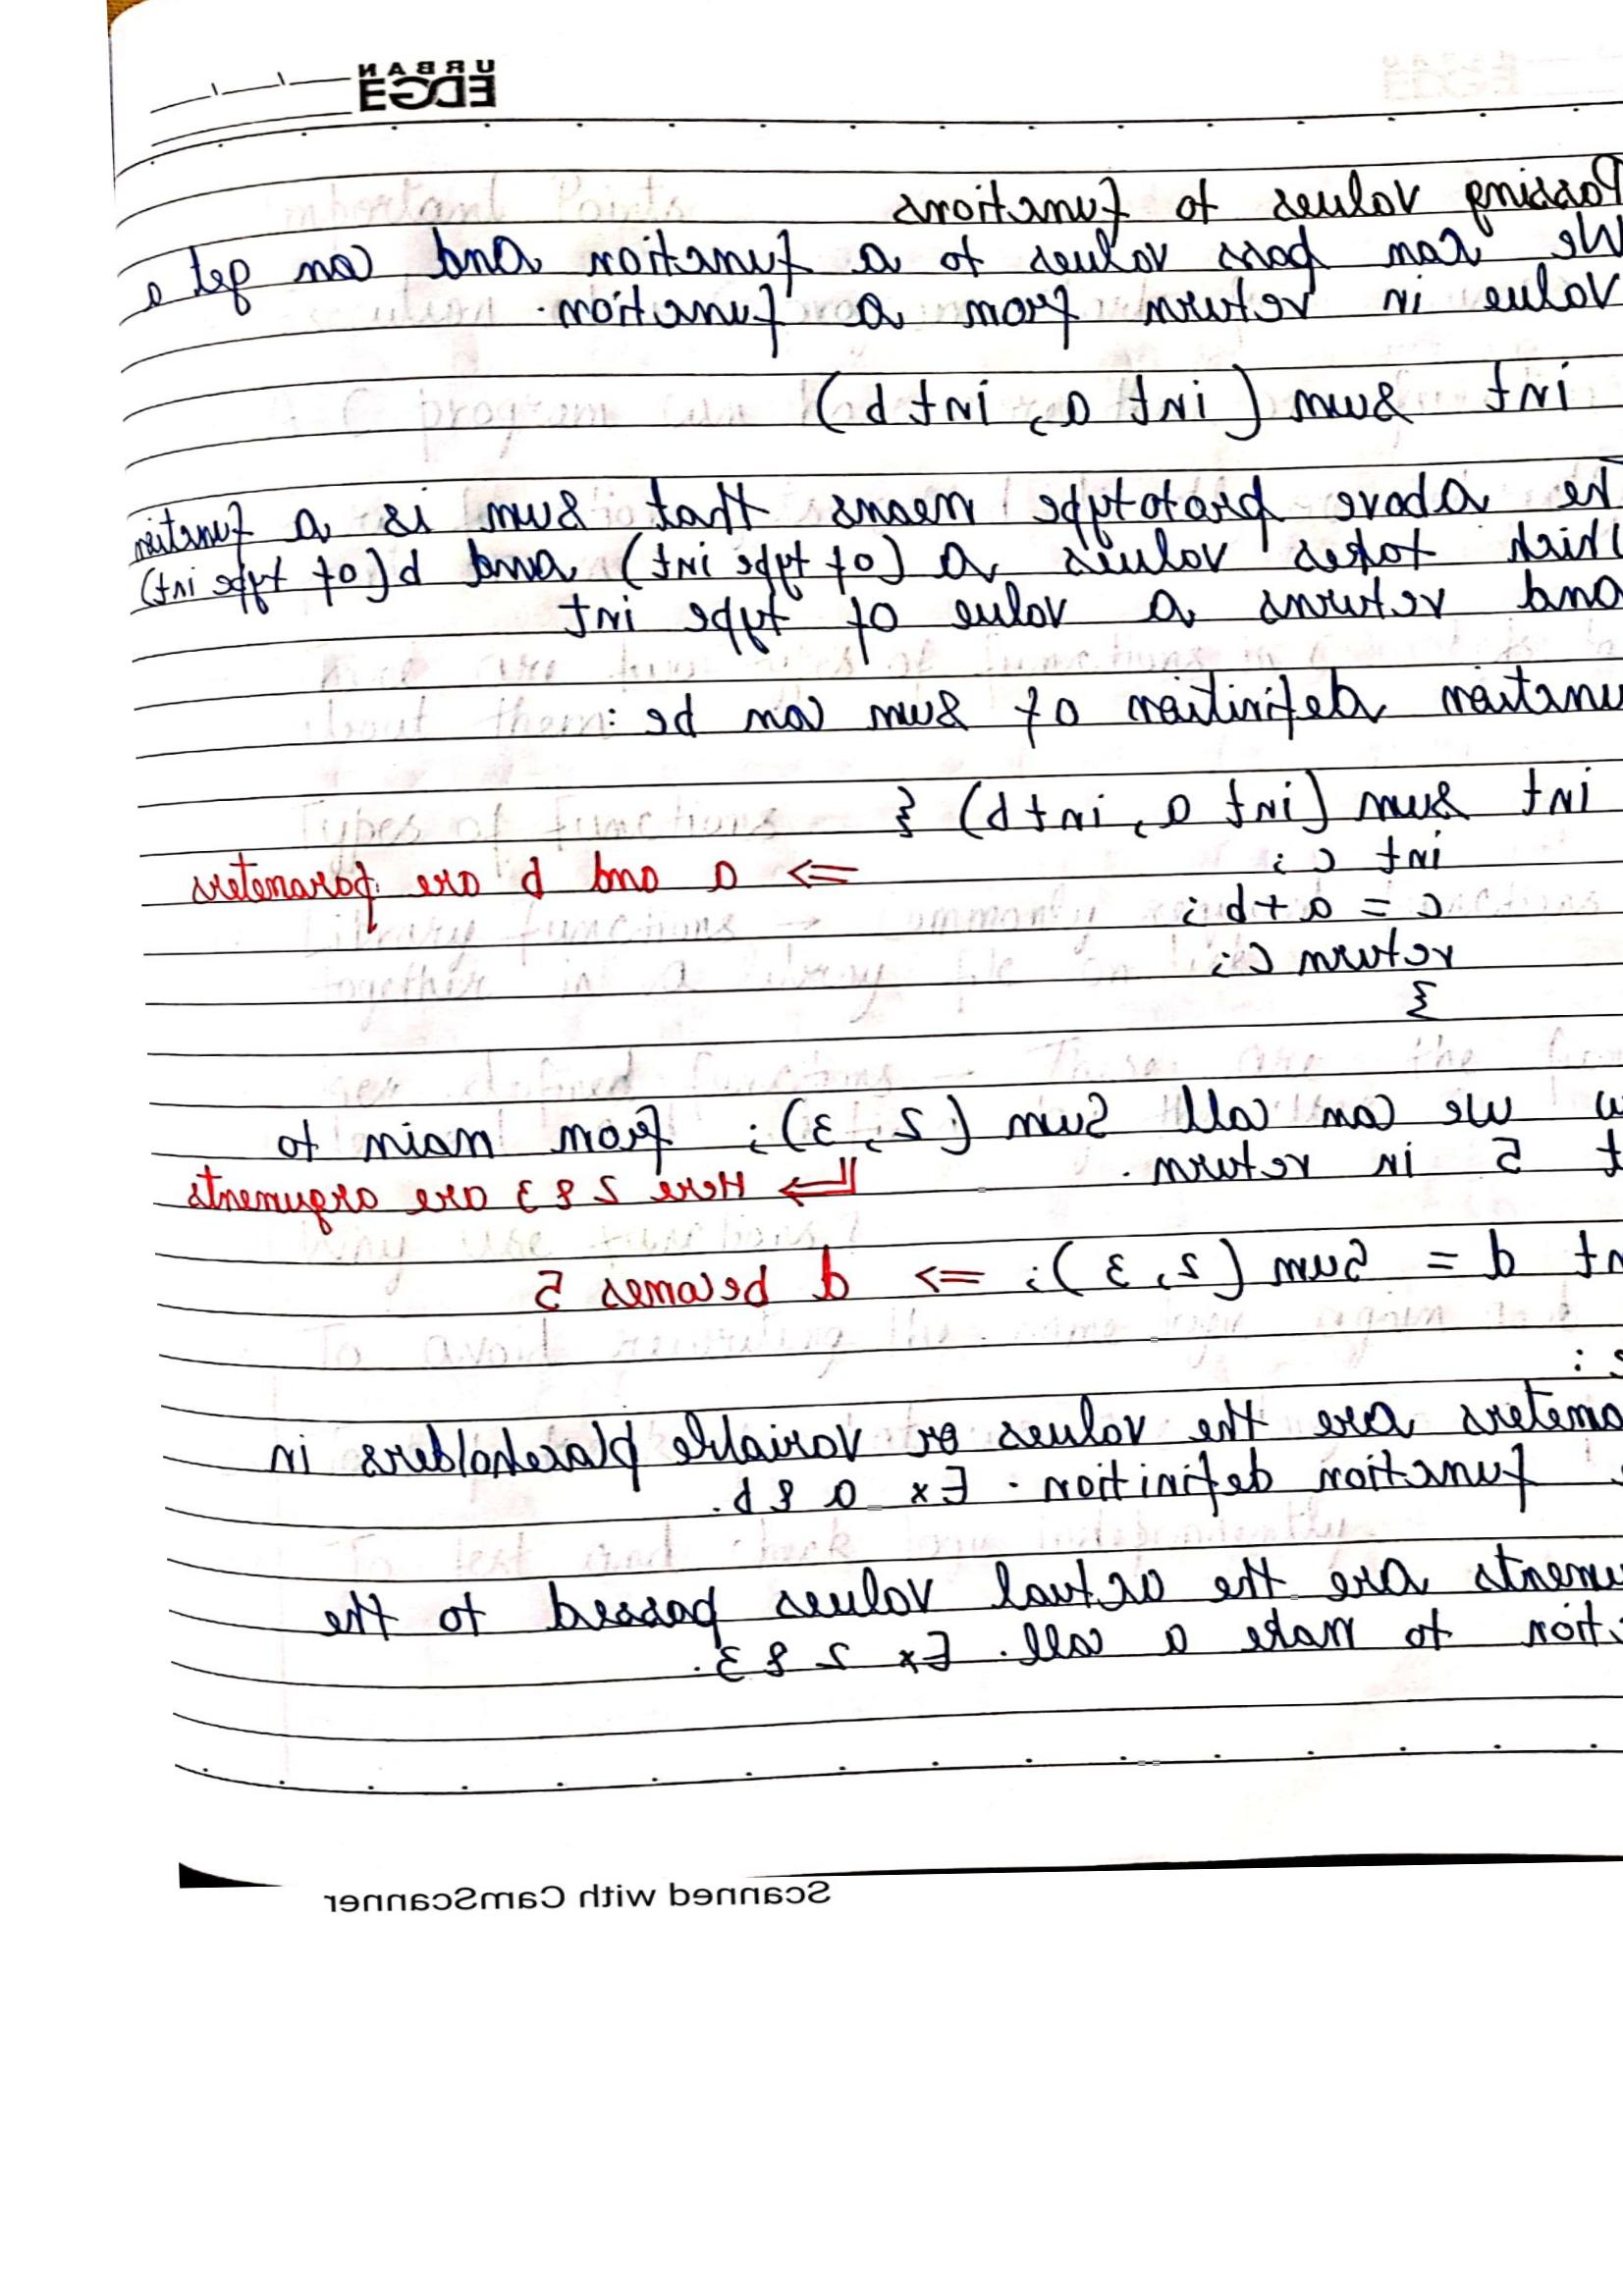 URBAN
EDGE
Passing values to functions
We can pass values to a function and can get a
value in return from a function.
int sum (int a, int b)
he above prototype means that sum is a function
hich takes values a (of type int) and b (of type int)
and returns a value of type int
unction definition of sum can be:
int sum (int a, int b) {
int c;
⇒ a and b are parameters
c = a+b;
return c;
}
w we can call Sum (2, 3); from main to
t 5 in return.
⇒ Here 2 & 3 are arguments
nt d = Sum (2, 3); ⇒ d becomes 5
:
ameters are the values or variable placeholders in
function definition. Ex a & b.
uments are the actual values passed to the
ction to make a call. Ex 2 & 3.
Scanned with CamScanner